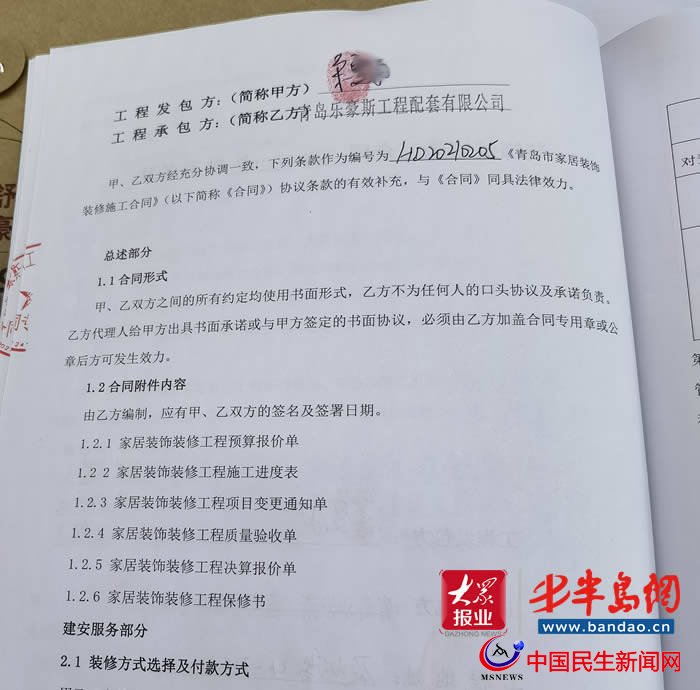 工程发包方：（简称甲方）
工程承包方：（简称乙方）青岛乐豪斯工程配套有限公司
甲、乙双方经充分协调一致，下列条款作为编号为 HD20210205《青岛市家居装饰
装修施工合同》（以下简称《合同》）协议条款的有效补充，与《合同》同具法律效力。
总述部分
1.1 合同形式
甲、乙双方之间的所有约定均使用书面形式，乙方不为任何人的口头协议及承诺负责。
乙方代理人给甲方出具书面承诺或与甲方签定的书面协议，必须由乙方加盖合同专用章或公
章后方可发生效力。
1.2 合同附件内容
由乙方编制，应有甲、乙双方的签名及签署日期。
1.2.1 家居装饰装修工程预算报价单
1.2 2 家居装饰装修工程施工进度表
1.2.3 家居装饰装修工程项目变更通知单
1.2.4 家居装饰装修工程质量验收单
1.2.5 家居装饰装修工程决算报价单
1.2.6 家居装饰装修工程保修书
建安服务部分
2.1 装修方式选择及付款方式
大众报业
DAZHONG NEWS
半岛网
www.bandao.cn
MSNEWS
中国民生新闻网